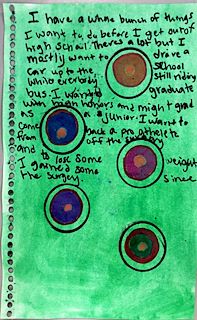 I have a whole bunch of things
I want to do before I get out of
high school. Theres a lot but I
mostly want to drove a
car up to the school
while everbody still riding
bus. I want to graduate
with high honors and might grad
as a junior. I want to
come back a pro athlete
from off the surgery
and to lose some weight
I gained some since
the surgery.